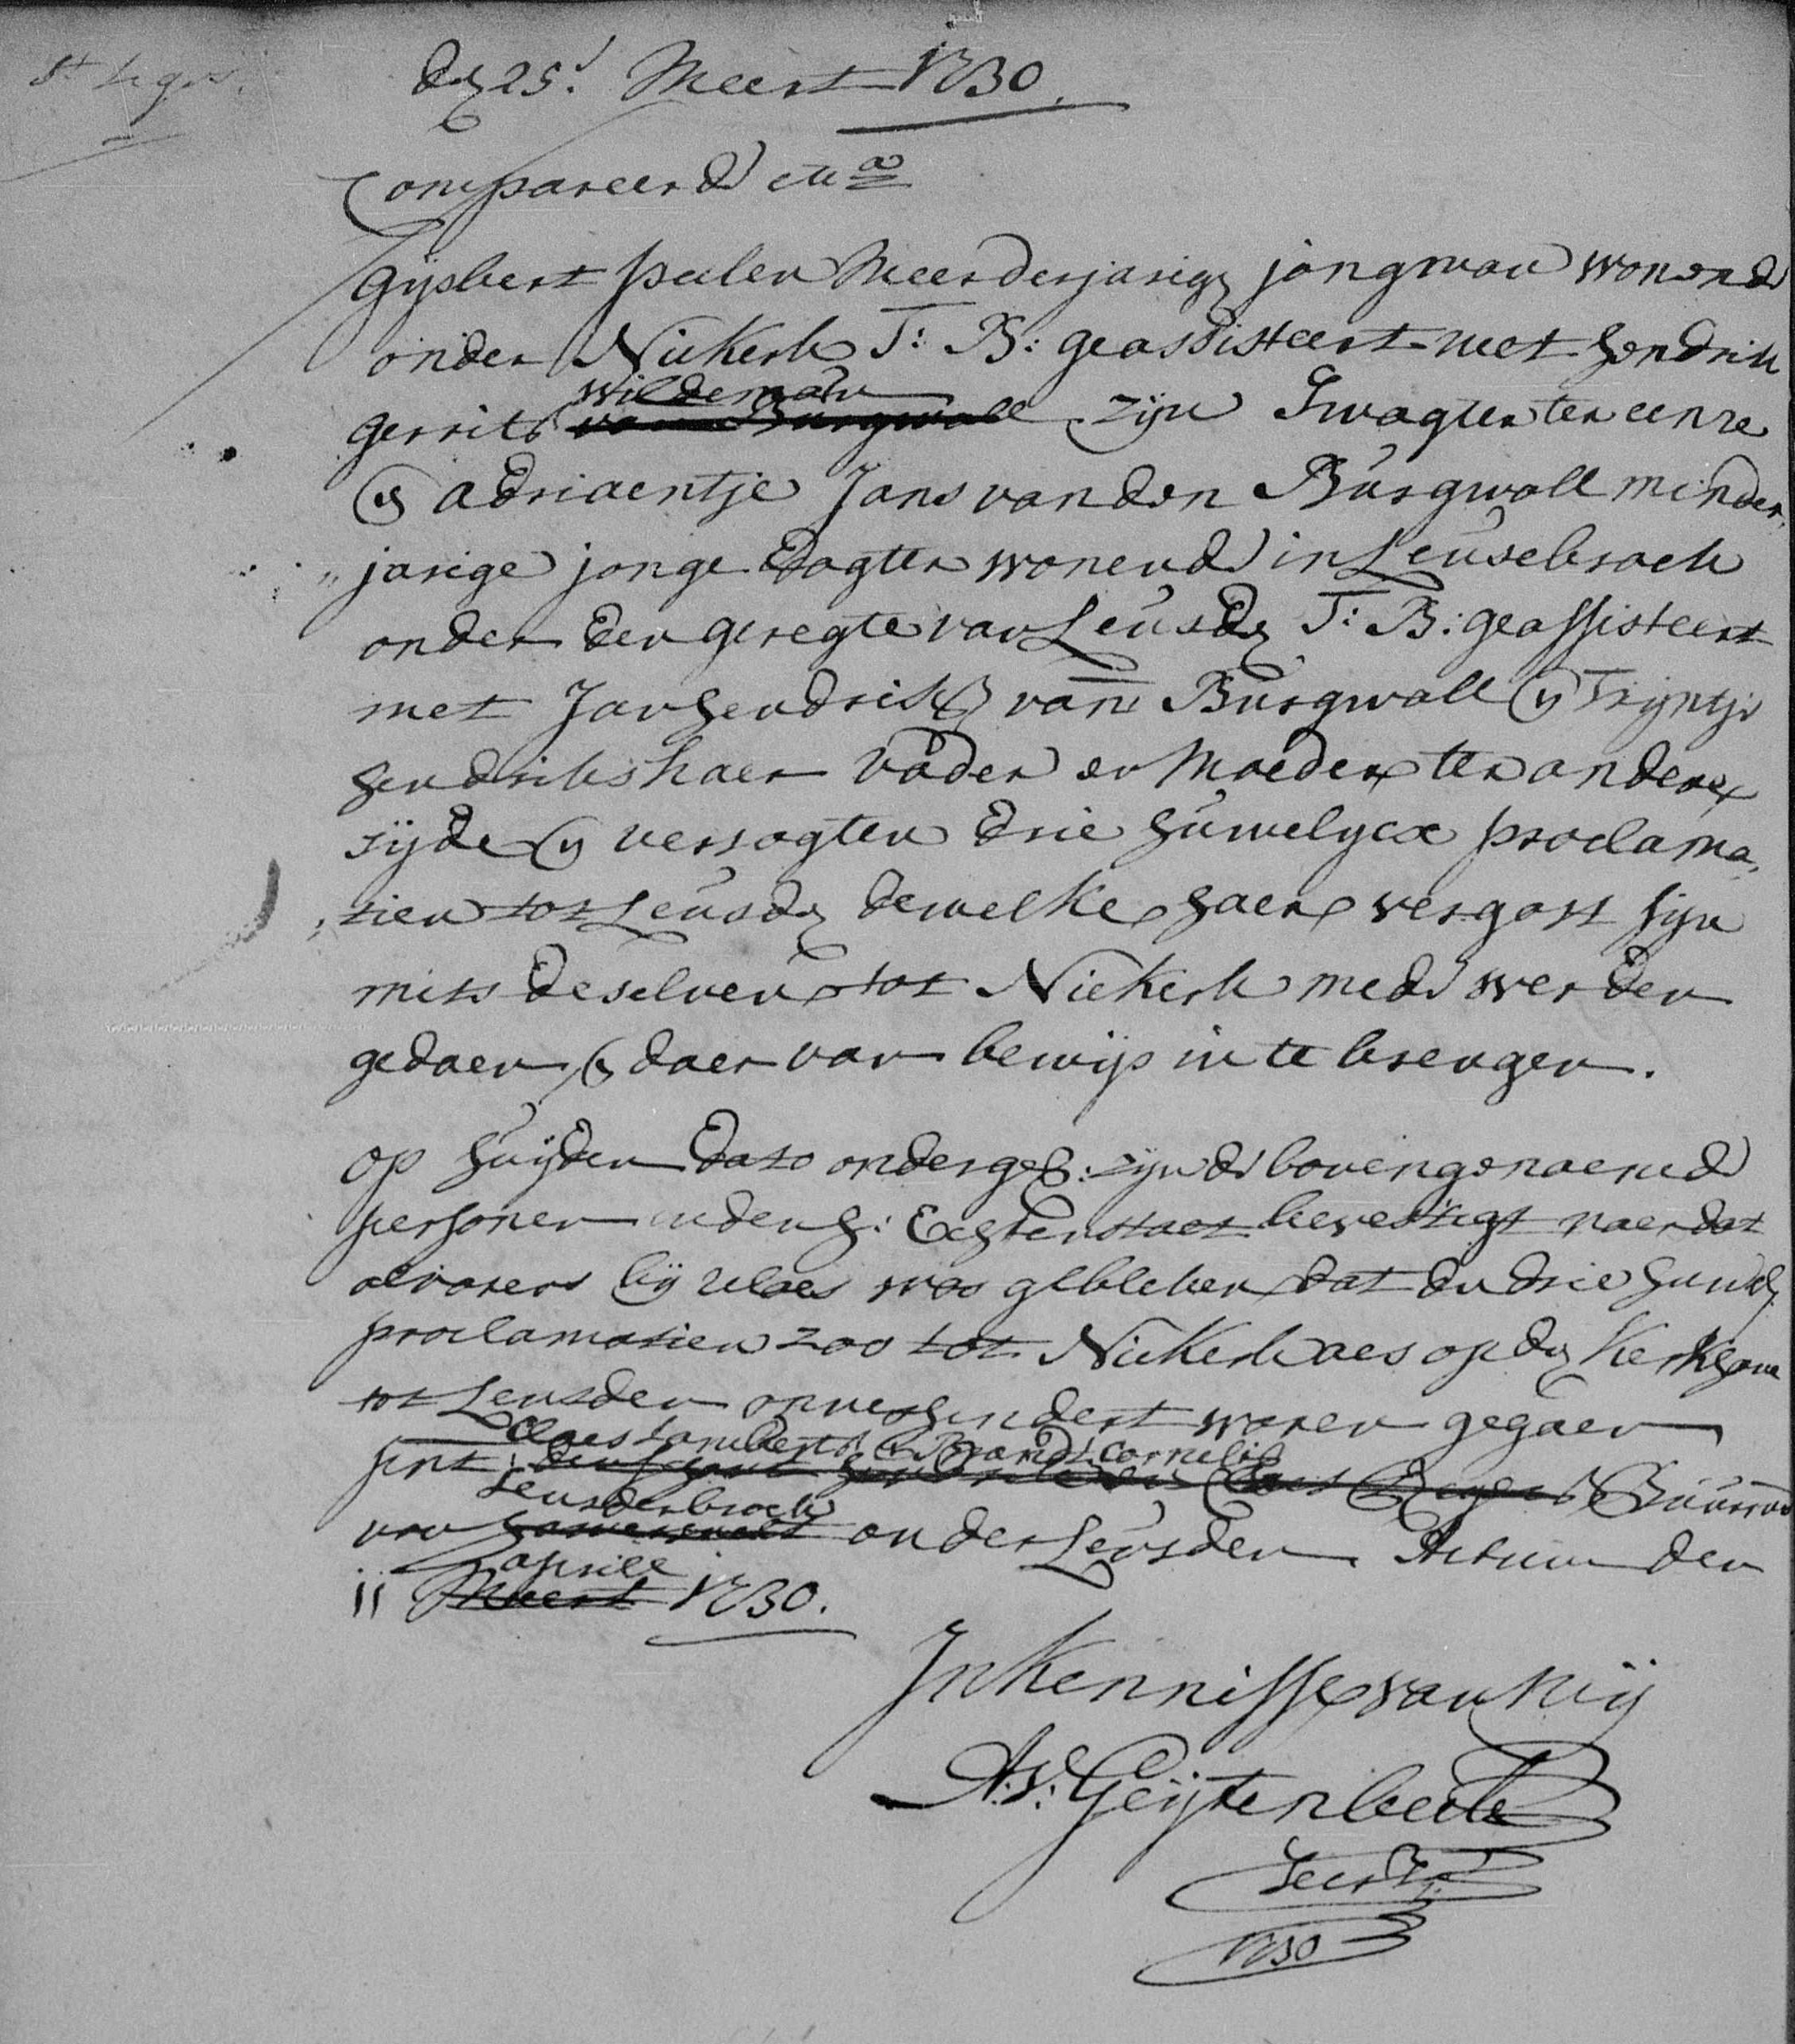 St Leger
den 25e. Meert 1730.
Compareerd etca
Gijsbert peelen Meerderjarig jongman wonend
onder Niekerk T: B: geassisteert met Hendrik
gerrits wildeman zijn Swagter ter eenre
en adriaentje Jans van den Burgwall minder
jarige jonge dogter wonend in Leusebroek
onder den geregte van Leusden T: B: geassisteert
met Jan Hendriks van Burgwall en Trijntje
hendriks haer vader en Moeder ter andere
sijde en versogten drie huwelycx proclama
tien tot Leusden dewelke haer vergost sijn
mits deselven tot Niekerk mede werden
gedaen en daer van bewijs in te brengen.
op huijden dato ondergesz: zijnde bovengenaemde
personen in den H: Eghtenstaet bevestigt naer dat
alvorens bij was gebleken dat de drie huwel
proclamatien zoo tot Niekerk aes op den Kerkhove
tot Leusden onverhindert waren gegaen
Claes Lamberts en Brandt Cornelis
pnt Buuren
Leusderbroek
van onder Leusden. Actum den
aprill
11 Meert 1730.
In Kennisse van Mij
A:V: Geijtenbeek
Secrts
1730